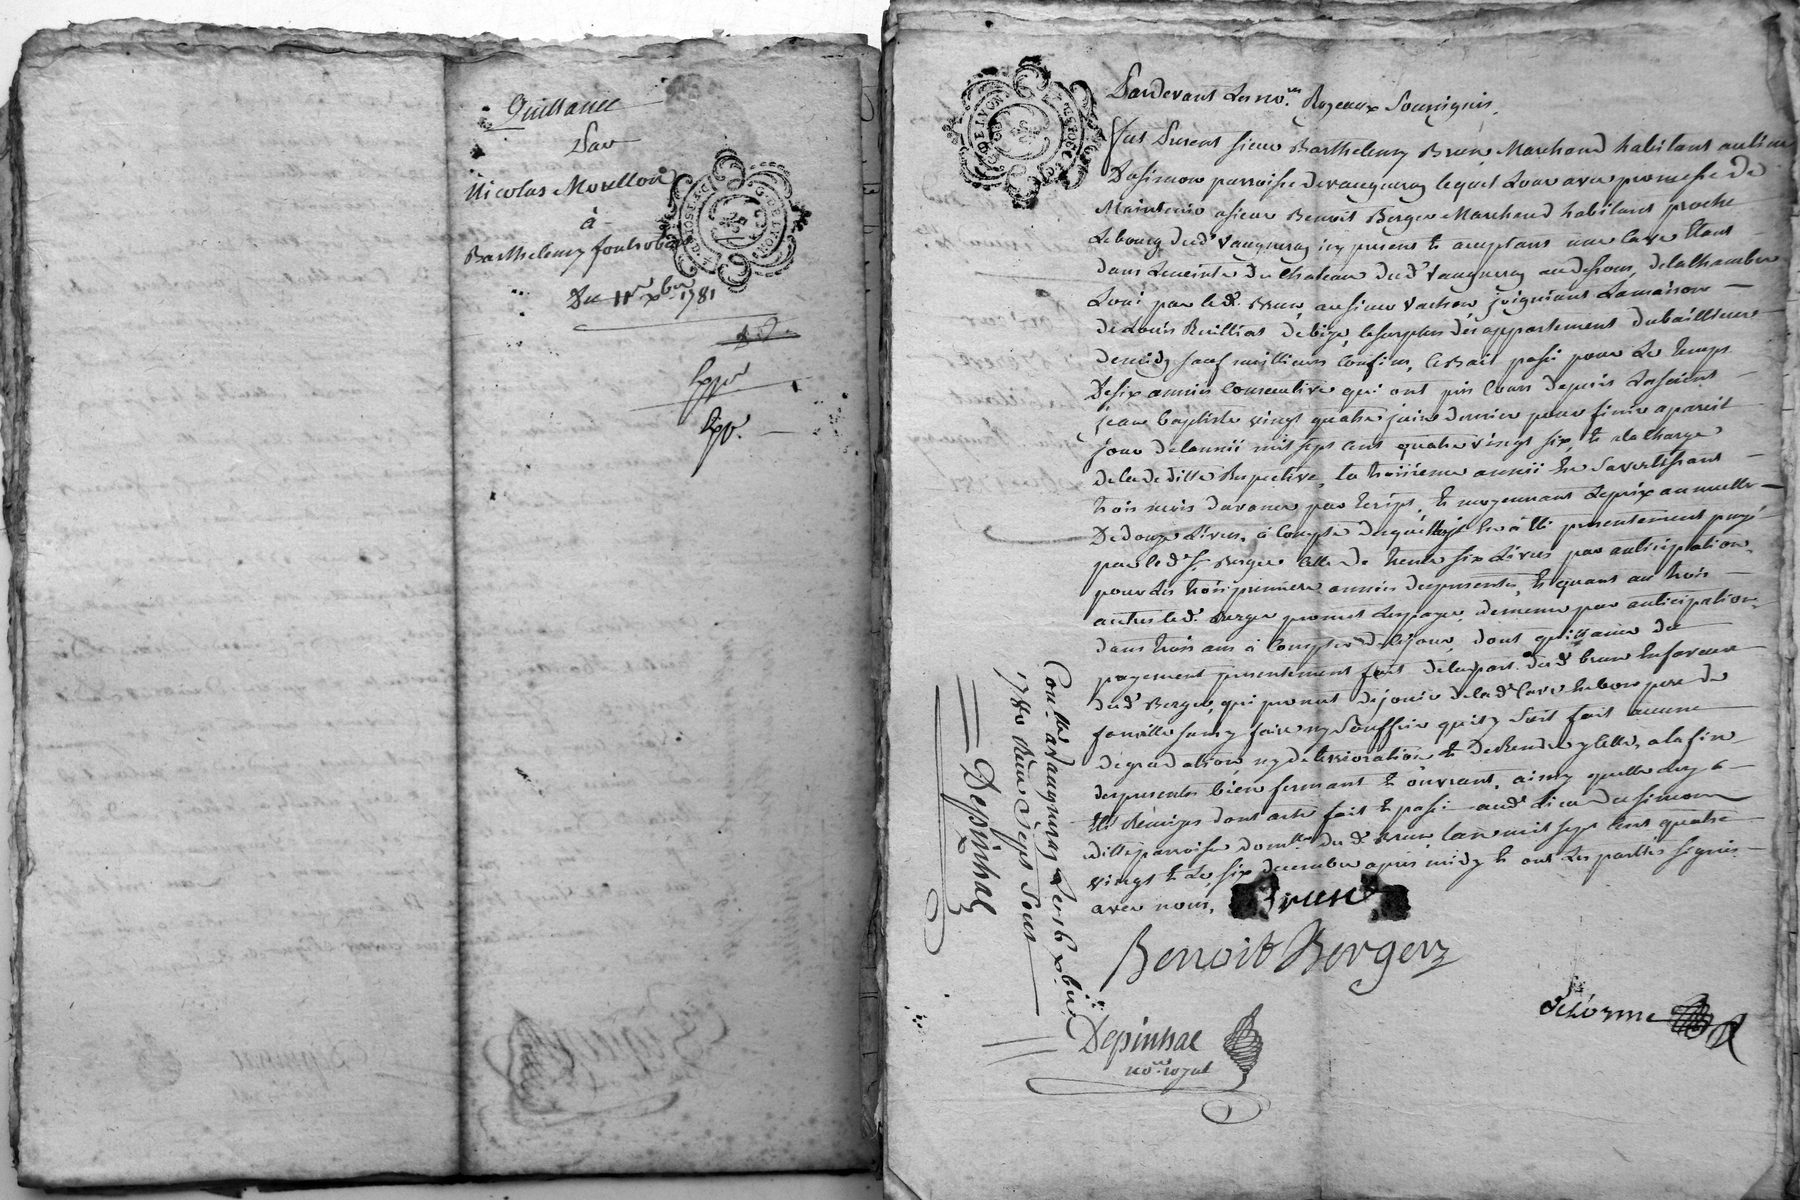 Quittance
Par
Nicolas Morellon
à
Barthelemy fontrobert
Du 11e xbre 1781
G. DE LYON
Pardevant Les nores Royaux Soussignés,
fut Present sieur Barthelemy Brun Marchand habitant au lieu
Dasimon parroisse de vaugneray lequel Loue avec promesse de
Maintenir a sieur Benoit Berger Marchand habitant proche
Le bourg dud. vaugneray icy present et acceptant une Cave Etant
dans L'enceinte du Chateau dud. vaugneray au dessous, de la chambre
Loué par led. Brun, au sieur vachon, joignant La maison
de Louis Rullliat de bize, le surplus des appartement du bailleur
de midy sauf meilleurs Confins, Ce Bail passé pour Le temps
De six années Consecutive qui ont pris Cours depuis La saint
jean Baptiste vingt quatre juin dernier pour finir a pareil
jour de L'année mil sept cent quatre vingt six, et a la charge
de la deditte Respective, la troisieme année En S'avertissant
trois mois d'avance par Ecrit, et moyennant Le prix annuelle
De douze Livres, a Compte duquel il a Eté presentement payé
par led. Sr. Berger Celle de trente six Livres par anticipation
pour Les trois premiere années des presentes, et quant au trois
autres led. Berger promet Les payer, de meme par anticipation
dans trois ans a Compter de Ce jour, dont quittance du
payement presentement fait de la part dud. brun En faveur
dud. Berger, qui promet de jouir de lad. Cave En bon pere de
famille sans y faire ny Souffrir quil y Soit fait aucune
degradation ny deterioration et de Rendre ycelle, a la fin
des presentes bien fermant et ouvrant, ainsy quelle luy a
Eté Remise dont acte fait et passé aud. Lieu Dasimon
ditte parroisse domlle du d. Brun, l'an mil sept cent quatre
vingt et Le six decembre apres midy et ont Les parties signés
avec nous,
Brun
Benoit Berger
Delorme
Depinhac
nore. royal
Conllé a vaugneray Le 16 xbre
1780 Reçu Sept Sous
Depinhac